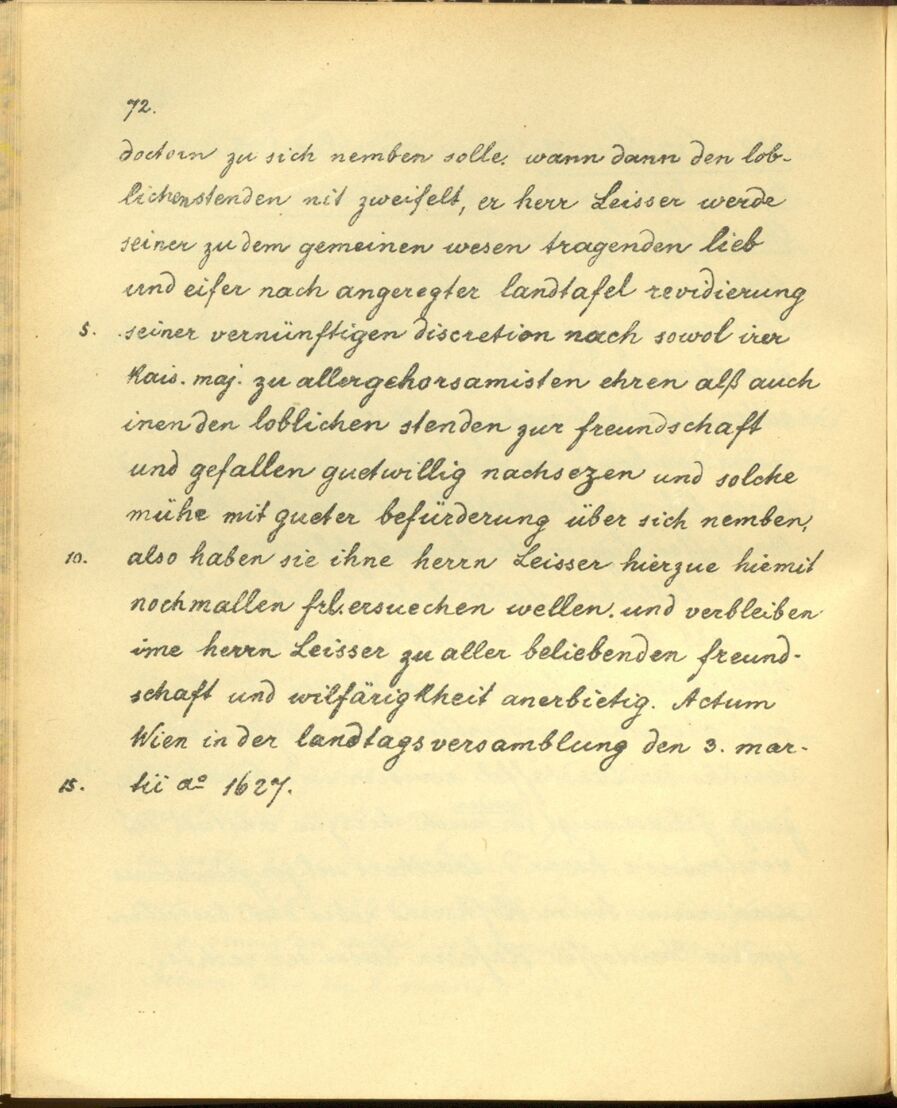 72.
doctorn zu sich nemben solle. wann dann den lob-
lichen stenden nit zweifelt, er herr Leisser werde
seiner zu dem gemeinen wesen tragenden lieb
und eifer nach angeregter landtafel revidierung
5. seiner vernünftigen discretion nach sowol irer
Kais. maj. zu allergehorsamisten ehren alß auch
inen den loblichen stenden zur freundschaft
und gefallen guetwillig nachsezen und solche
mühe mit gueter befürderung über sich nemben,
10. also haben sie ihne herrn Leisser hierzue hiemit
nochmallen frl. ersuechen wellen. und verbleiben
ime herrn Leisser zu aller beliebenden freund-
schaft und wilfärigkheit anerbietig. Actum
Wien in der landtagsversamblung den 3. mar-
15. tii aº 1627.